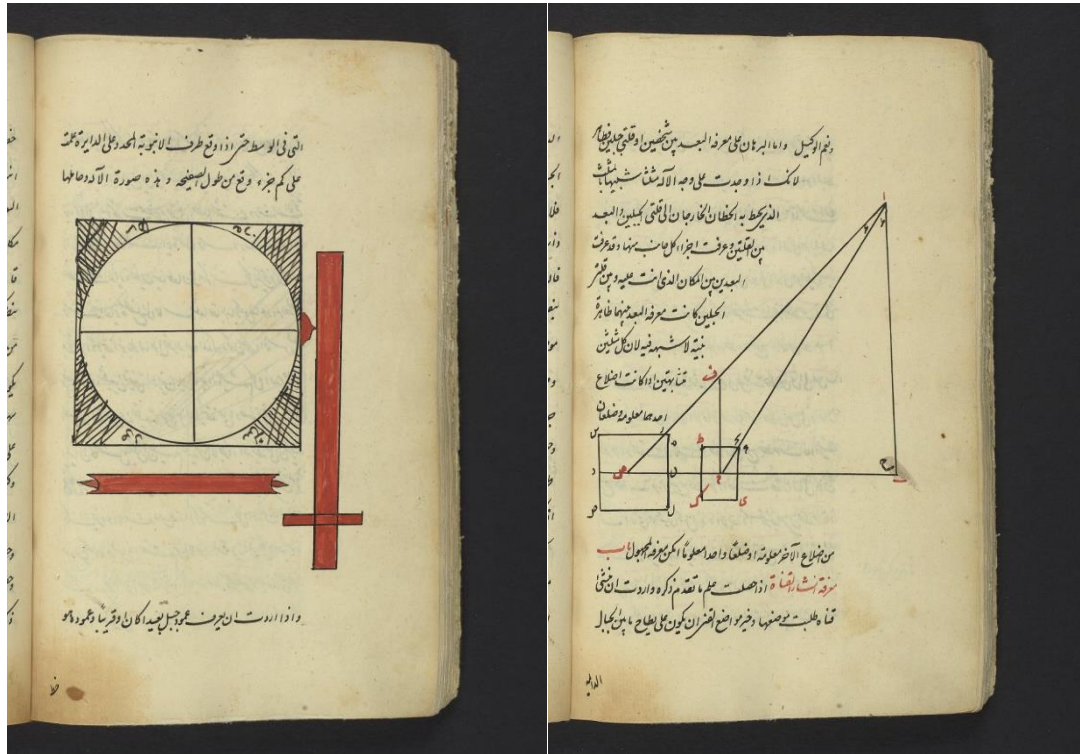 التى فى الوسط حتى اذا وقع طرف الانبوبة المحدد على الدايرة علمت
على كم جزء وقع من طول الصفيحة وهذه صورة الآلة وحاملها
واذا اردت ان يعرف عمود جبل بعيدا كان او قريبا وعموده هو
خط
ونعم الوكيل واما البرهان على معرفة البعد بين شخصين او قلتى جبلين فظاهر
لانك اذا وجدت على وجه الآلة مثلثا شبيها بالمثلث
الذى يحيط به الخطان الخارجان الى قلتى الجبلين والبعد
بين القلتين وعرفت اجزا كل جانب منها وقد عرفت
البعدين بين المكان الذى انت عليه وبين قلتى
الجبلين كانت معرفة البعد بينهما ظاهرة
بينة لا شبهة فيه لان كل مثلثين
متشابهين اذا كانت اضلاع
احدهما معلومة وضلعان
من اضلاع الآخر معلومة او ضلعا واحدا معلوما امكن معرفة المجهول باب
معرفة انشاء القناة اذا حصلت علم ما تقدم ذكره واردت ان تنشئ
قناة طلبت موضعها وخير مواضع القنى ان يكون على بطاح ما بين الجبال